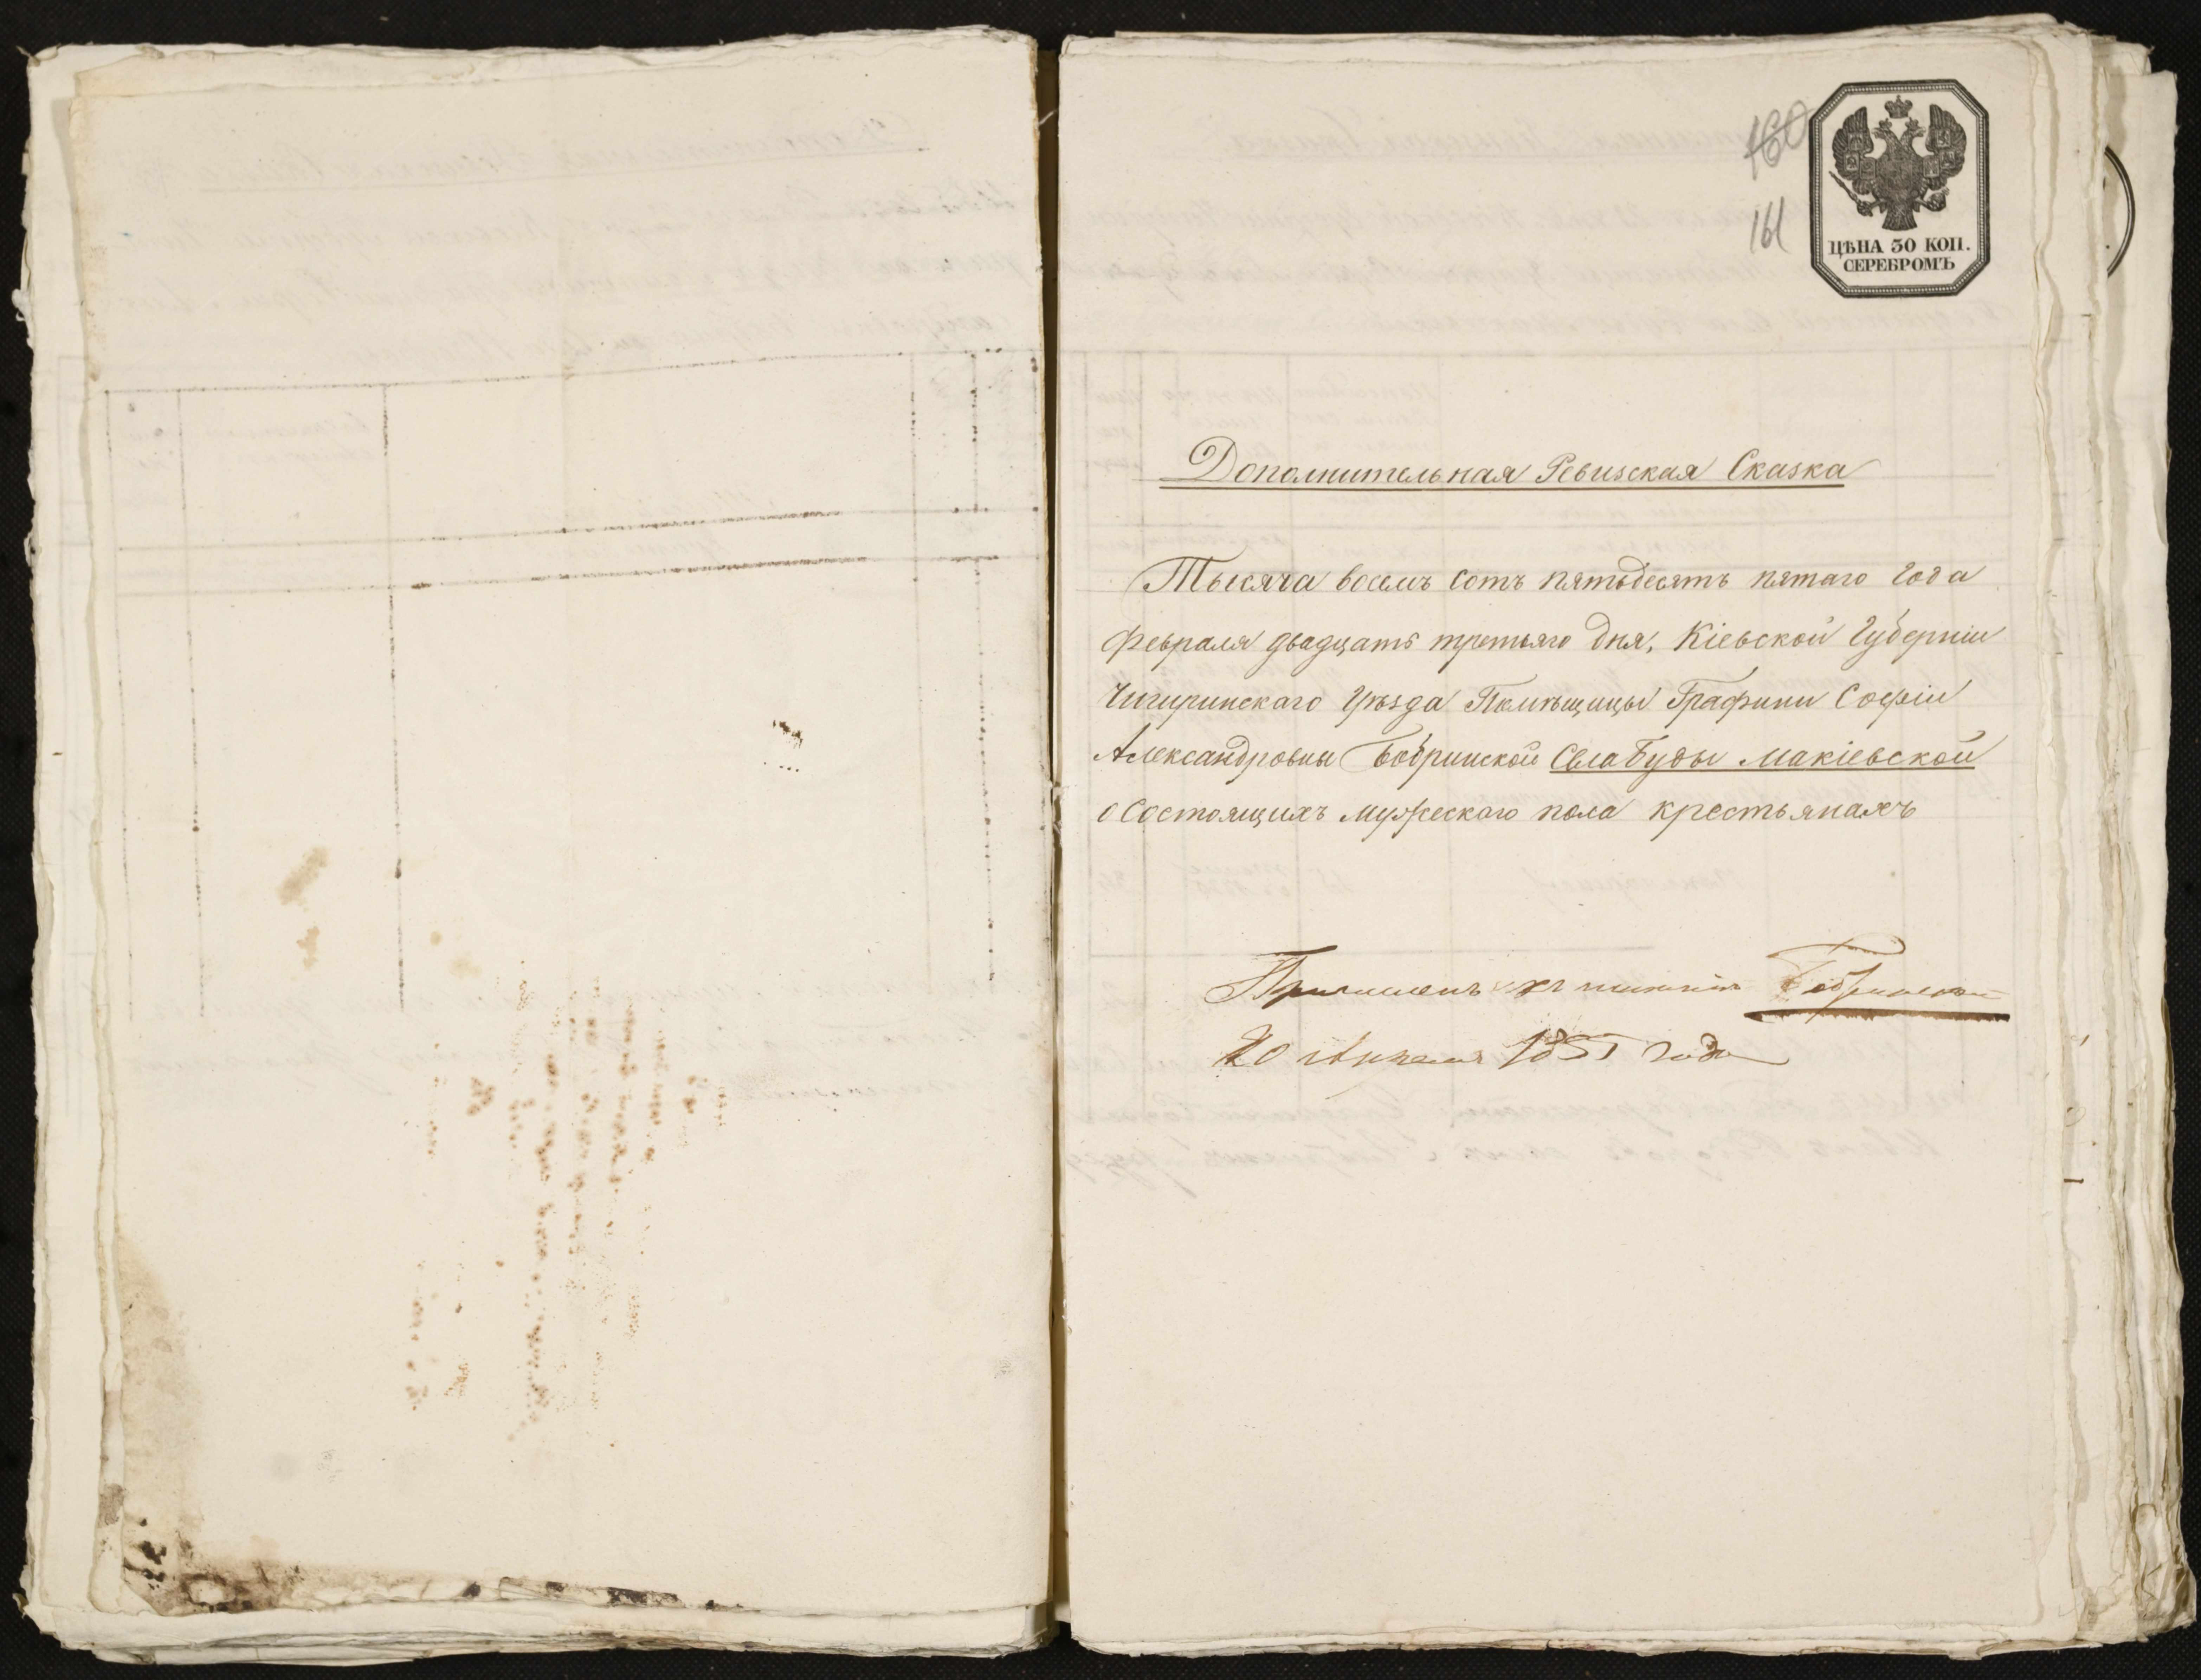 160
161
ЦѢНА 30 КОП.
СЕРЕБРОМЪ
Дополнительная Ревизская Сказка
Тысяча восемь сотъ пятьдесятъ пятаго года
февраля двадцать третьяго дня, Кіевской Губерніи
Чигиринскаго Уѣзда Помѣщицы Графини Софіи
Александровны Бобринской Села Буды Макіевской
о состоящихъ мужескаго пола крестьянахъ
Бобринской
20 Апреля 1855 года